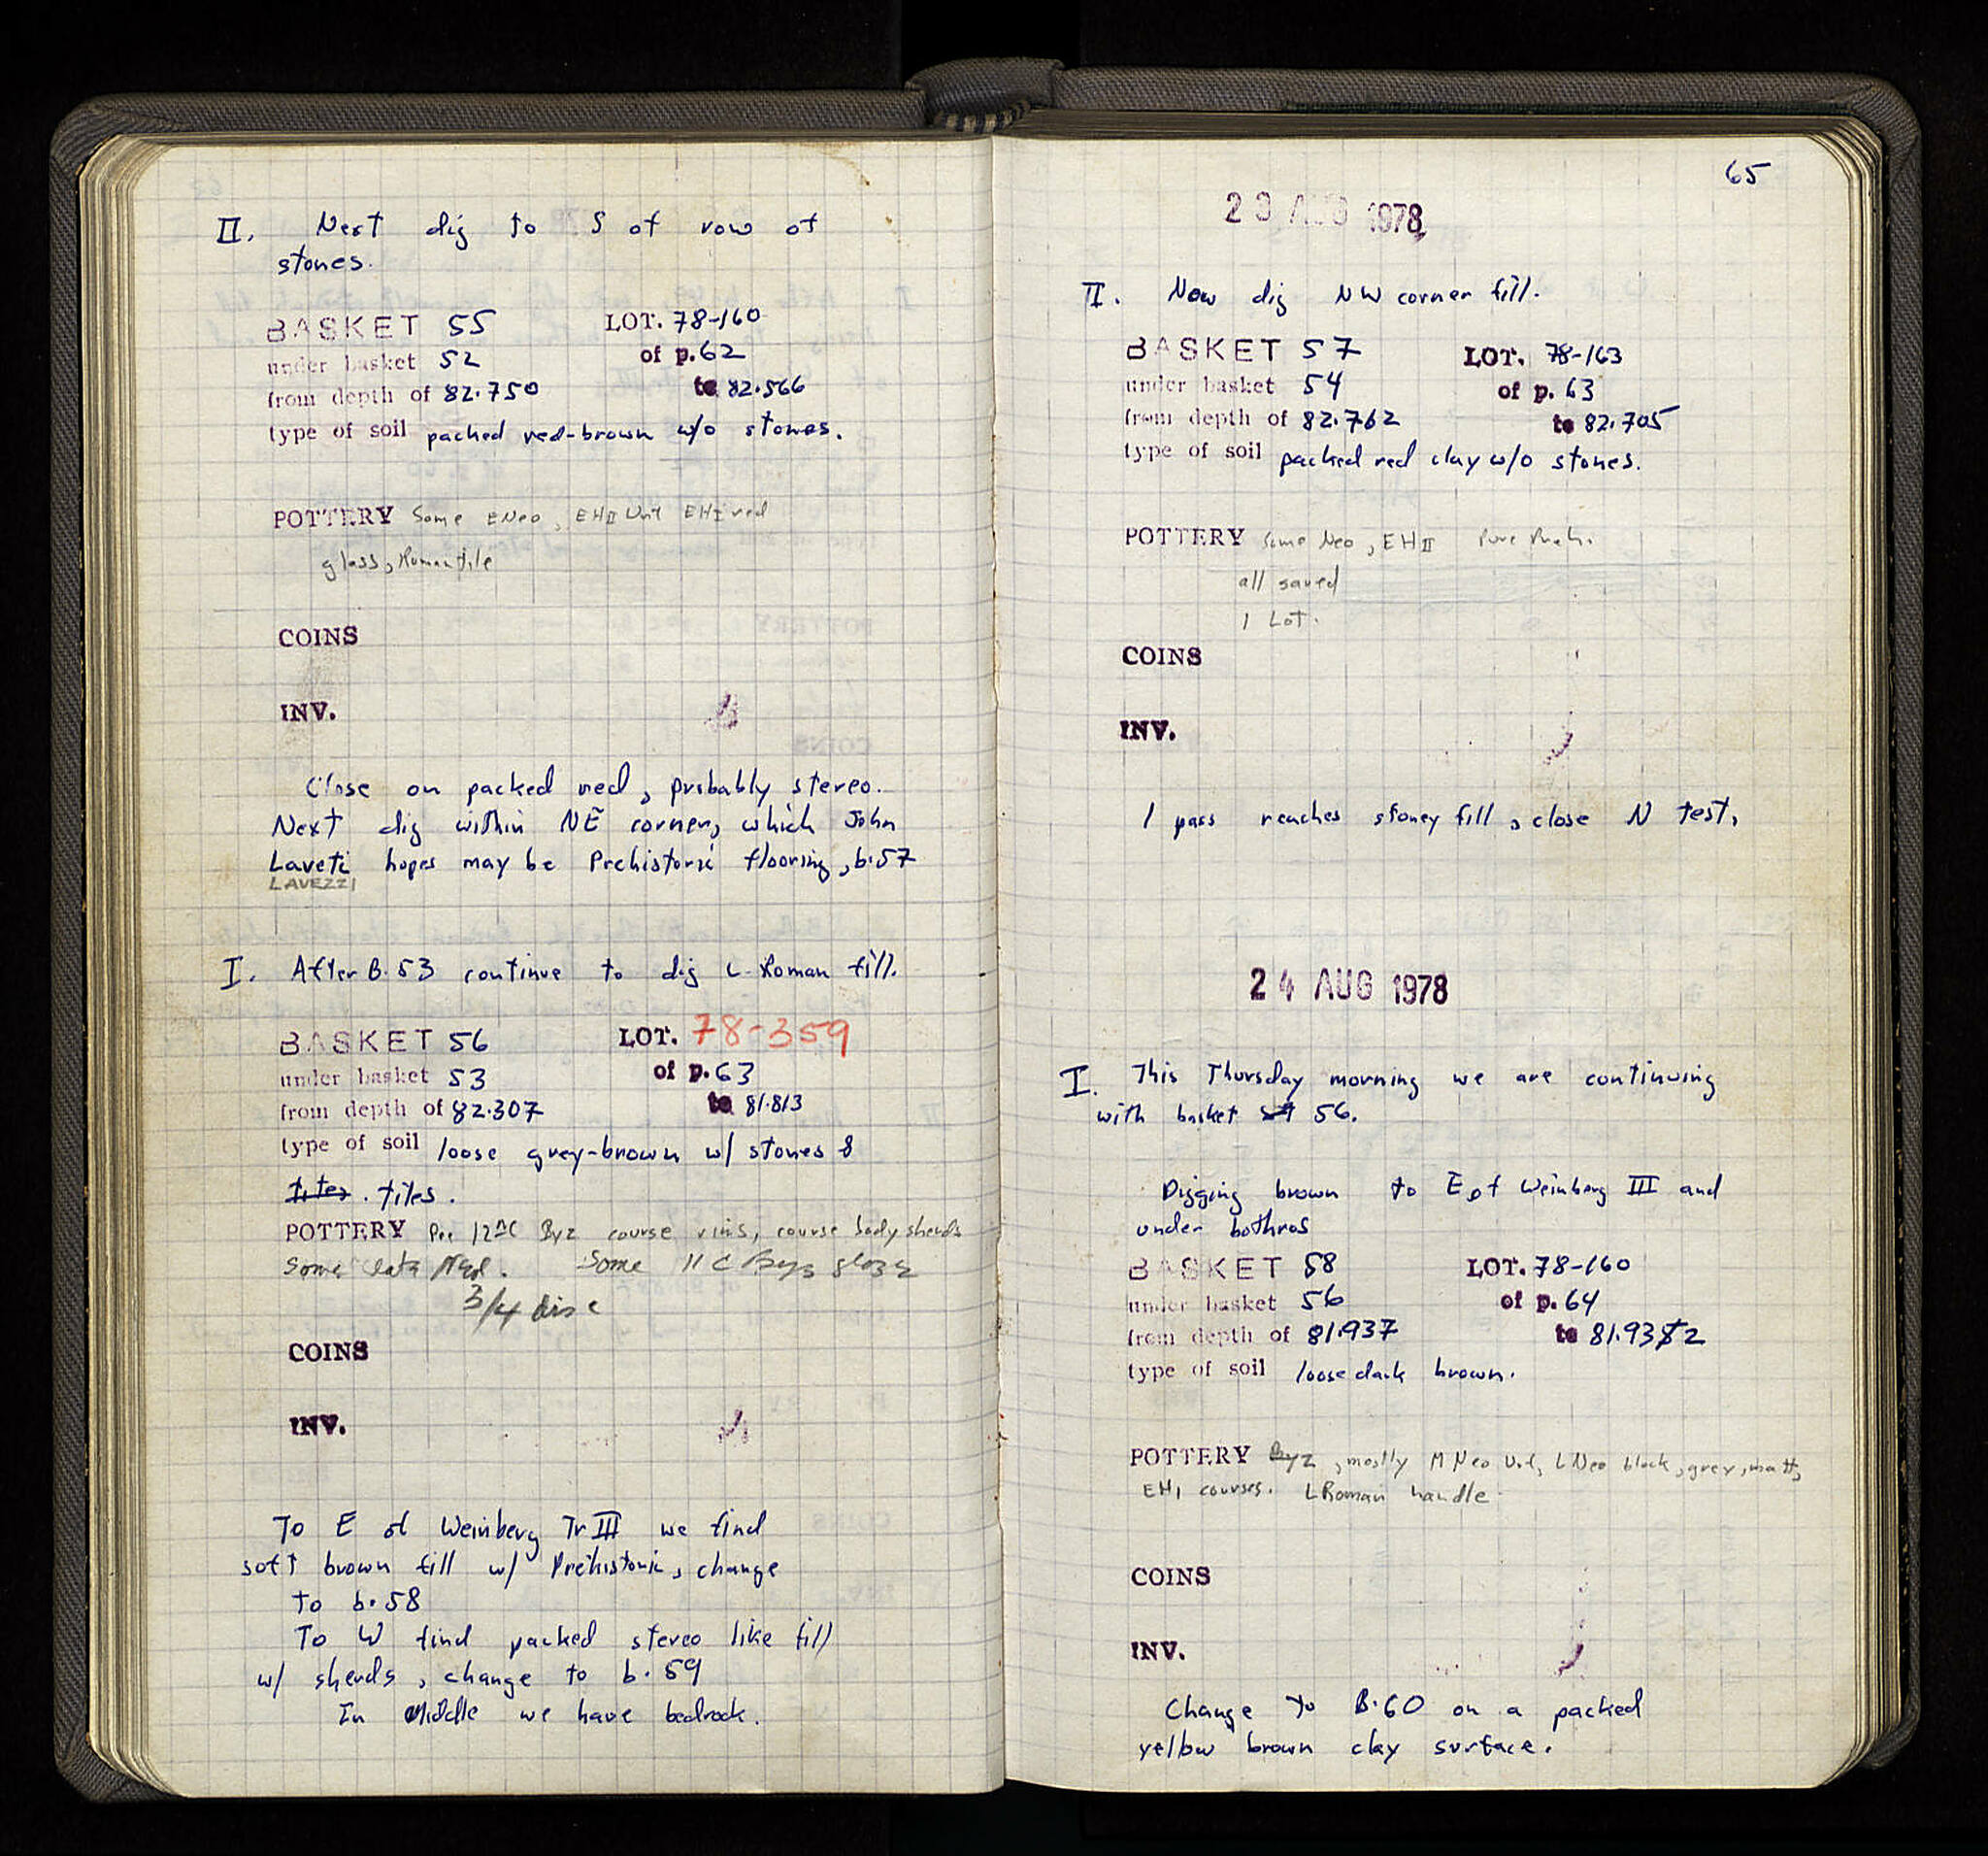 II. Next dig to S of row of
stones.
BASKET 55 LOT. 78-160
under basket 52 of p. 62
from depth of 82.750 to 82.566
type of soil packed red-brown w/o stones.
POTTERY Some ENeo, EHII Urf EHI red
glass, Roman tile
COINS
INV.
Close on packed red, probably stereo.
Next dig within NE corner, which John
Laveti hopes may be Prehistoric flooring, b.57
LAVEZZI
I. After B.53 continue to dig L. Roman fill.
BASKET 56 LOT. 78-359
under basket 53 of p. 63
from depth of 82.307 to 81.813
type of soil loose grey-brown w/ stones &
tiles.
POTTERY Pre 12th C Byz course rims, course body sherds
Some Late Rom. Some 11 C Byz glaze
3/4 disc
COINS
INV.
To E of Weinberg Tr III we find
soft brown fill w/ Prehistoric, change
to b.58
To W find packed stereo like fill
w/ sherds, change to b.59
In Middle we have bedrock.
65
23 AUG 1978
II. Now dig NW corner fill.
BASKET 57 LOT. 78-163
under basket 54 of p. 63
from depth of 82.762 to 82.705
type of soil packed red clay w/o stones.
POTTERY Some Neo, EHII Pure Preh.
all saved
1 Lot.
COINS
INV.
1 pass reaches stoney fill, close N test.
24 AUG 1978
I. This Thursday morning we are continuing
with basket 56.
Digging brown to E of Weinberg III and
under bothros
BASKET 58 LOT. 78-160
under basket 56 of p. 64
from depth of 81.937 to 81.932
type of soil loose dark brown.
POTTERY Byz, mostly M Neo Urf, L Neo black, grey, matt,
EHI courses. L Roman handle
COINS
INV.
Change to B.60 on a packed
yellow brown clay surface.